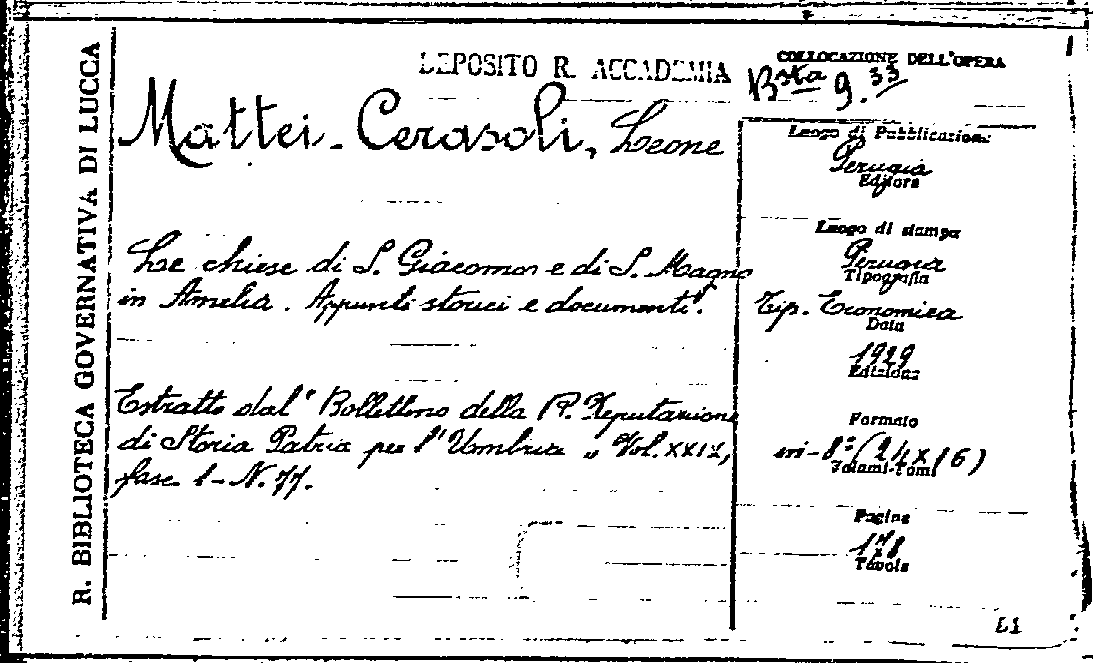 R. BIBLIOTECA GOVERNATIVA DI LUCCA
DEPOSITO R. ACCADEMIA
COLLOCAZIONE DELL'OPERA
Bsta 9.33
Mattei-Cerasoli, Leone
Le chiese di S. Giacomo e di S. Magno
in Amelia. Appunti storici e documenti".
Estratto dal "Bollettino della R. Deputazione
di Storia Patria per l'Umbria" Vol. XXIX,
fasc. 1 - N. 77.
Luogo di Pubblicazione
Perugia
Editore
Luogo di stampa
Perugia
Tipografia
Tip. Economica
Data
1929
Edizione
Formato
in-8° (24x16)
Volumi-Tomi
Pagine
178
Tavole